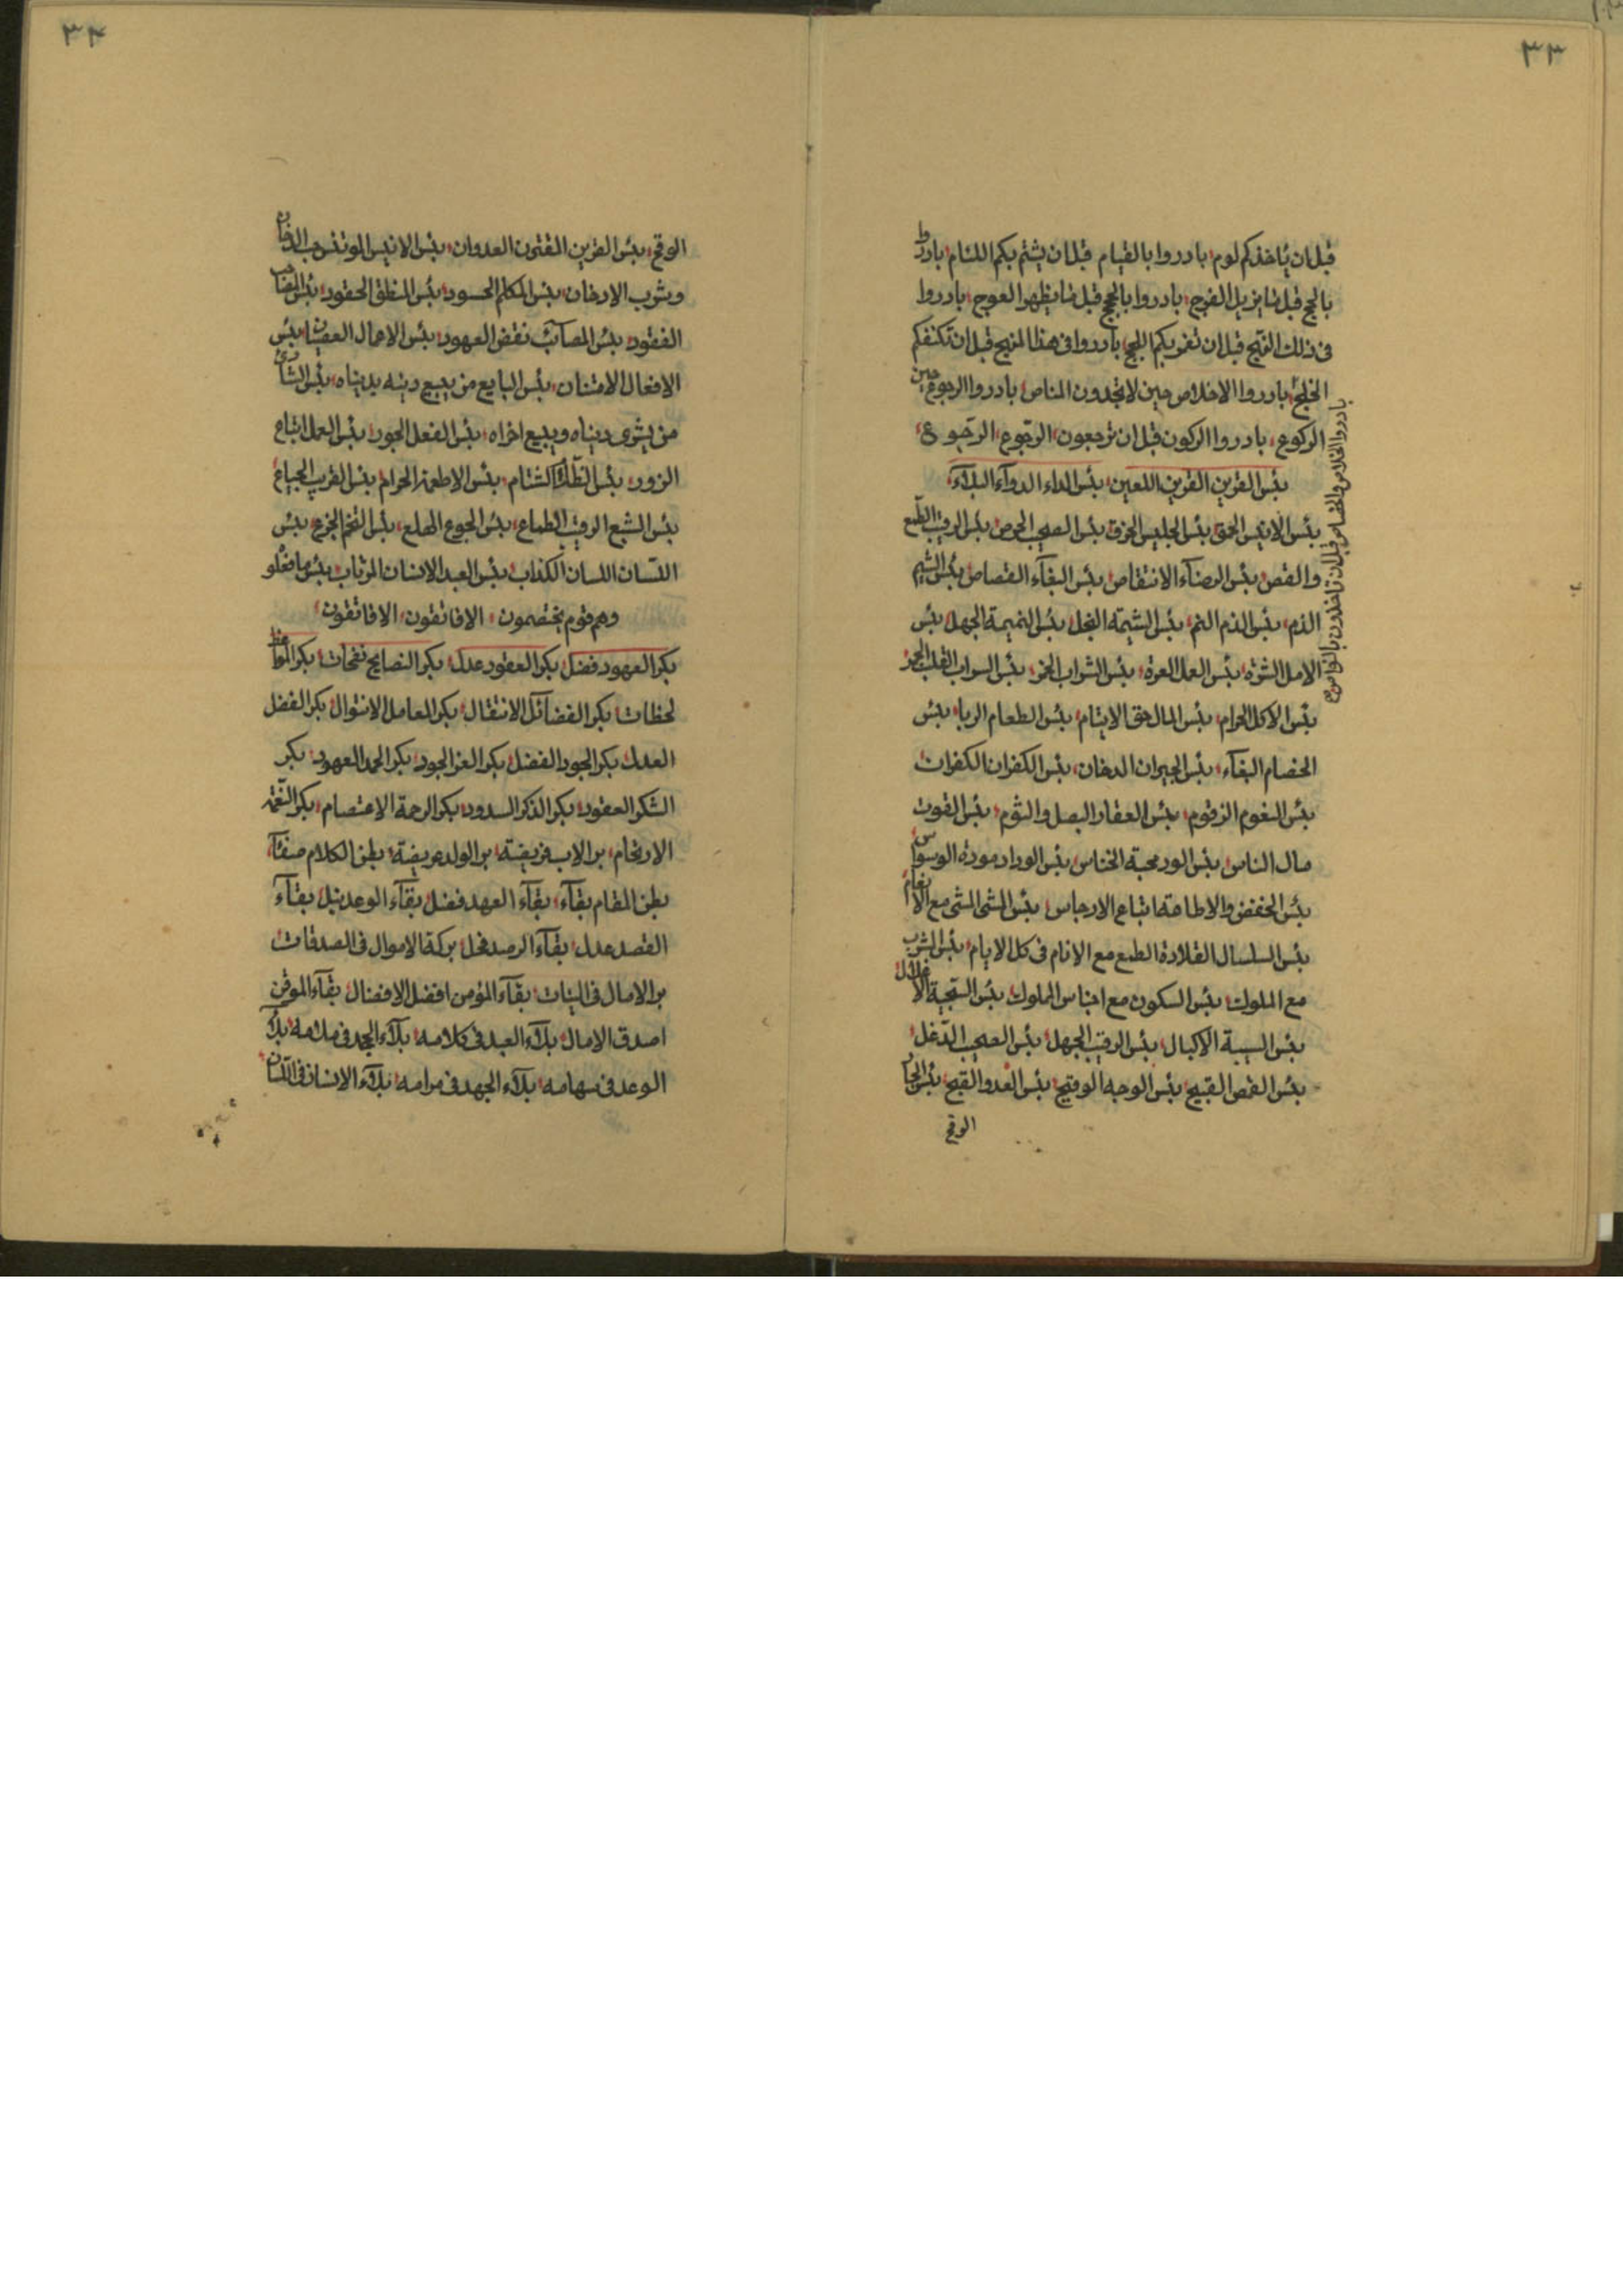 ٣٣
قبل ان يأخذكم لوم بادروا بالقيام قبل ان يشتم بكم اللئام بادروا
بالحج قبل ما يزيل الفرج بادروا بالحجج قبل ما يظهر العوج بادروا
فى ذلك النهج قبل ان تغر بكم اللجج بادروا فى هذا المنهج قبل ان تكنفكم
الخلج بادروا الاخلاص حين لا تجدون المناص بادروا الرجوع حين
الركوع بادروا الركون قبل ان ترجعون الرجوع الرجوع
بادروا الخلاص والخصاص قبل ان تاخذون بالنواصى
بئس القرين القرين اللعين بئس الداء الدواء البلاء
بئس الانيس الحمق بئس الجليس الخرق بئس الصحب الحرص بئس الرقيب الطمع
والقص بئس البقاء القصاص بئس الشيم
الذم بئس الذم النم بئس الشيمة البخل بئس النميمة الجهل بئس
الامل الشره بئس العمل العره بئس الشراب الخمر بئس القلب الحجر
بئس الاكل الحرام بئس المال حق الايتام بئس الطعام الربا بئس
الخصام البغاء بئس الجيران الدخان بئس الكفران الكفران
بئس الزقوم بئس العقار البصل والثوم بئس القوت
مال الناس بئس الورد محبة الخناس بئس الوداد مودة الوسواس
بئس الخفض والاطاعة اتباع الارجاس بئس المشى المشى مع الانعام
بئس السلسال القلادة الطمع مع الانام فى كل الايام بئس الشرب
مع الملوك بئس السكون مع اجناس الملوك بئس السجية الاغلال
بئس الرقيب الجهل بئس الصحب الدغل
بئس القبيح بئس الوجه الوقيح بئس العدو القبح بئس الجار
الوقح
٣٤
الوقح بئس القرين العدوان بئس الانيس الدخان
وشرب الادخان بئس المكلم الحسود بئس المنطق الحقود بئس
بئس المصائب نقض العهود بئس الاعمال العصيان بئس
الافعال الامتنان بئس البايع من يبيع دينه بدنياه بئس الشارى
من يشرى دنياه ويبيع اخراه بئس الفعل الجور بئس العمل اتباع
الزور بئس بئس الاطعمة الحرام بئس القرب
بئس الشبع الرقيب الطماع بئس الجوع الهلع بئس بئس
اللسان اللسان الكذاب بئس العبد الانسان المرتاب بئس ما فعلو
وهم قوم يختصمون الا فاتقون الا فاتقون
بكر العهود فضل بكر العقود عدل بكر النصايح نفحات بكر المواعظ
لحظات بكر الفضائل الانتقال بكر المعامل بكر الفضل
العدل بكر الجود الفضل بكر العز الجود بكر الحمد العهود بكر
الشكر العقود بكر الذكر السدود بكر الرحمة الاعتصام بكر النقمة
بر الاب فريضة بر الولد عريضة بطن الكلام صفاء
بطن المقام بقاء بقاء العهد فضل بقاء الوعد نيل بقاء
القصد عدل بقاء الرصد بركة الاموال فى الصدقات
بر الامال فى النيات بقاء المؤمن افضل الافضال بقاء الموقن
اصدق الامال بلاء العبد فى كلامه بلاء المجد فى ملامه بلاء
الوعد فى سهامه بلاء الجهد فى مرامه بلاء الانسان فى اللسان